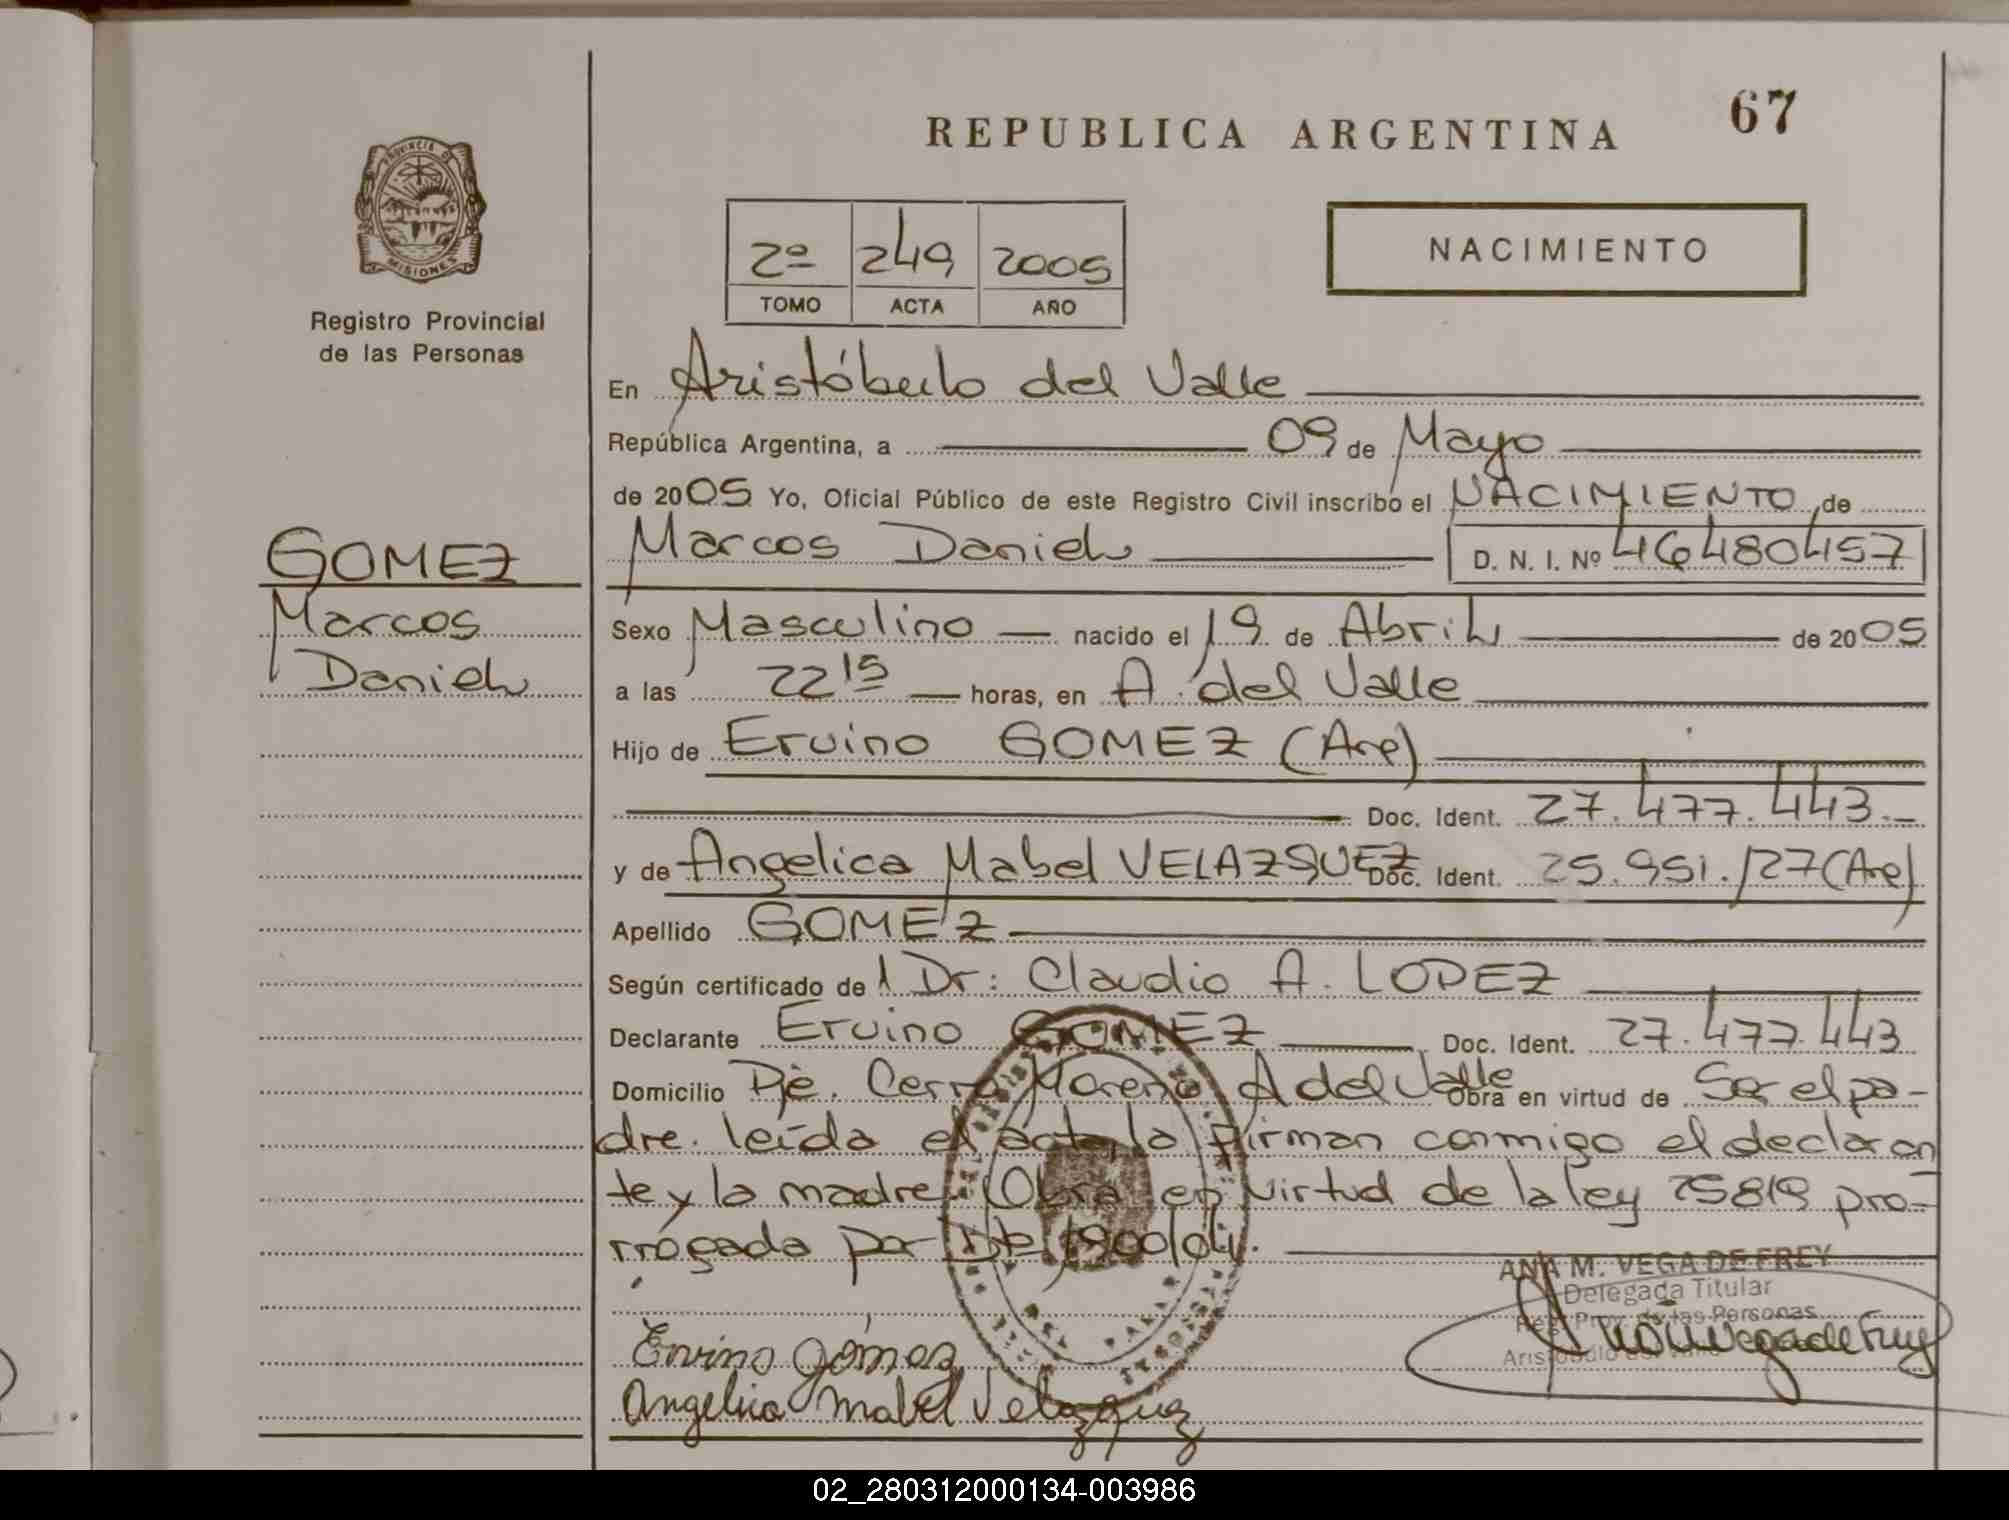 REPUBLICA ARGENTINA
67
PROVINCIA DE
MISIONES
Registro Provincial
de las Personas
2º 249 2005
TOMO ACTA AÑO
NACIMIENTO
GOMEZ
Marcos
Daniel
En Aristóbulo del Valle
República Argentina, a 09 de Mayo
de 2005 Yo, Oficial Público de este Registro Civil inscribo el NACIMIENTO de
Marcos Daniel D. N. I. Nº 46480457
Sexo Masculino nacido el 19 de Abril de 2005
a las 22 15 horas, en A. del Valle
Hijo de Ervino GOMEZ (Arg)
Doc. Ident. 27.477.443.-
y de Angelica Mabel VELAZSQUEZ Doc. Ident. 25.951.127 (Arg)
Apellido GOMEZ
Según certificado de l Dr: Claudio A. LOPEZ
Declarante Ervino GOMEZ Doc. Ident. 27.477.443
Domicilio Pje. Cerro Moreno A del Valle Obra en virtud de Ser el pa-
dre. leída el acta la firman conmigo el declaran
te y la madre. Obra en virtud de la ley 25819 pro-
rrogada por 1900/04.
ANA M. VEGA DE FREY
Delegada Titular
Reg. Prov. de las Personas
Aristóbulo del Valle
Ervino Gómez
Angelica Mabel Velazquez
02_280312000134-003986